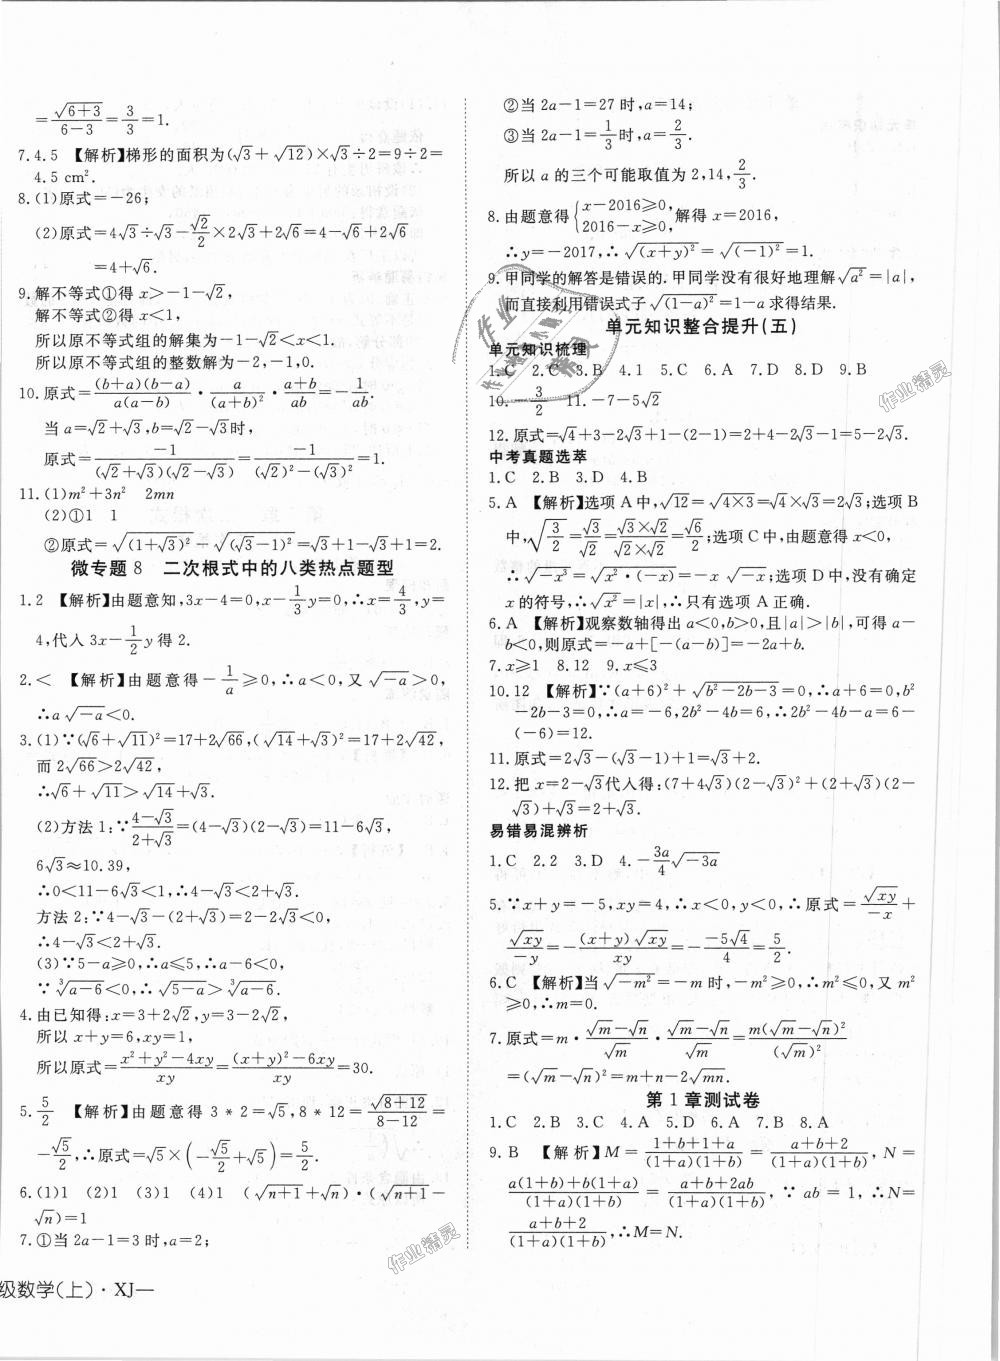 =√(6+3)/(6-3)=3/3=1.
7.4.5 【解析】梯形的面积为(√3+√12)×√3÷2=9÷2=
4.5 cm².
8.(1)原式=-26;
(2)原式=4√3÷√3-√2/2×2√3+2√6=4-√6+2√6
=4+√6.
9.解不等式①得x>-1-√2,
解不等式②得x<1,
所以原不等式组的解集为-1-√2<x<1.
所以原不等式组的整数解为-2,-1,0.
10.原式=(b+a)(b-a)/a(a-b)·a/(a+b)²·(a+b)/ab=-1/ab.
当a=√2+√3,b=√2-√3时,
原式=-1/(√2+√3)(√2-√3)=-1/((√2)²-(√3)²)=1.
11.(1)m²+3n² 2mn
(2)①1 1
②原式=√(1+√3)²-√(√3-1)²=1+√3-√3+1=2.
微专题8 二次根式中的八类热点题型
1.2 【解析】由题意知,3x-4=0,x-1/3y=0,∴x=4/3,y=
4,代入3x-1/2y得2.
2.< 【解析】由题意得-1/a≥0,∴a<0,又√-a>0,
∴a√-a<0.
3.(1)∵(√6+√11)²=17+2√66,(√14+√3)²=17+2√42,
而2√66>2√42,
∴√6+√11>√14+√3.
(2)方法1:∵(4-√3)/(2+√3)=(4-√3)(2-√3)=11-6√3,
6√3≈10.39,
∴0<11-6√3<1,∴4-√3<2+√3.
方法2:∵4-√3-(2+√3)=2-2√3<0,
∴4-√3<2+√3.
(3)∵5-a≥0,∴a≤5,∴a-6<0,
∵∛(a-6)<0,∴√(5-a)>∛(a-6).
4.由已知得:x=3+2√2,y=3-2√2,
所以x+y=6,xy=1,
所以原式=(x²+y²-4xy)/xy=((x+y)²-6xy)/xy=30.
5.5/2 【解析】由题意得3*2=√5,8*12=√(8+12)/(8-12)=
-√5/2,∴原式=√5×(-√5/2+√5)=5/2.
6.(1)1 (2)1 (3)1 (4)1 (√(n+1)+√n)·(√(n+1)-
√n)=1
7.①当2a-1=3时,a=2;
级数学(上)·XJ—
②当2a-1=27时,a=14;
③当2a-1=1/3时,a=2/3.
所以a的三个可能取值为2,14,2/3.
8.由题意得{x-2016≥0, 2016-x≥0, 解得x=2016,
∴y=-2017,∴√(x+y)²=√(-1)²=1.
9.甲同学的解答是错误的.甲同学没有很好地理解√a²=|a|,
而直接利用错误式子√(1-a)²=1-a求得结果.
单元知识整合提升(五)
单元知识梳理
1.C 2.C 3.B 4.1 5.C 6.A 7.D 8.D 9.B
10.-3/2 11.-7-5√2
12.原式=√4+3-2√3+1-(2-1)=2+4-2√3-1=5-2√3.
中考真题选萃
1.C 2.B 3.D 4.B
5.A 【解析】选项A中,√12=√(4×3)=√4×√3=2√3;选项B
中,√(3/2)=√3/√2=(√3×√2)/(√2×√2)=√6/2;选项C中,由题意得x<0,
∴√-x³=√(x²·(-x))=-x√-x;选项D中,没有确定
x的符号,∴√x²=|x|,∴只有选项A正确.
6.A 【解析】观察数轴得出a<0,b>0,且|a|>|b|,可得a-
b<0,则原式=-a+[-(a-b)]=-2a+b.
7.x≥1 8.12 9.x≤3
10.12 【解析】∵(a+6)²+√(b²-2b-3)=0,∴a+6=0,b²
-2b-3=0,∴a=-6,2b²-4b=6,∴2b²-4b-a=6-
(-6)=12.
11.原式=2√3-(√3-1)+1=√3+2.
12.把x=2-√3代入得:(7+4√3)(2-√3)²+(2+√3)(2-
√3)+√3=2+√3.
易错易混辨析
1.C 2.2 3.D 4.-3a/4√-3a
5.∵x+y=-5,xy=4,∴x<0,y<0,∴原式=√xy/-x+
√xy/-y=-(x+y)√xy/xy=--5√4/4=5/2.
6.C 【解析】当√-m²=-m时,-m²≥0,∴m²≤0,又m²
≥0,∴m=0.
7.原式=m·(√m-√n)/√m·(√m-√n)/√m=m(√m-√n)²/(√m)²
=(√m-√n)²=m+n-2√mn.
第1章测试卷
1.C 2.B 3.C 4.A 5.D 6.A 7.B 8.A
9.B 【解析】M=(1+b+1+a)/(1+a)(1+b)=(a+b+2)/(1+a)(1+b),N=
(a(1+b)+b(1+a))/(1+a)(1+b)=(a+b+2ab)/(1+a)(1+b),∵ab=1,∴N=
(a+b+2)/(1+a)(1+b),∴M=N.
作业精灵
作业精灵